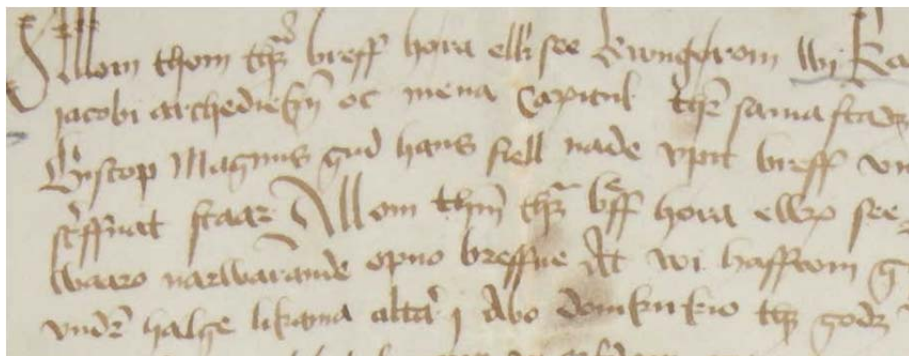 Allom thom thz breff höra eller see kungörom wj
jacobi archediekn oc mena Capitul thr sama stadz
Biscop Magnus gud hans siell nade vpit breff vn
screffuat staar Allom thm thz bff höra ellr see
waaro narwarande opno breffue At wi haffwom g
vndr halge likama altar j Abo domkirkio thz godz